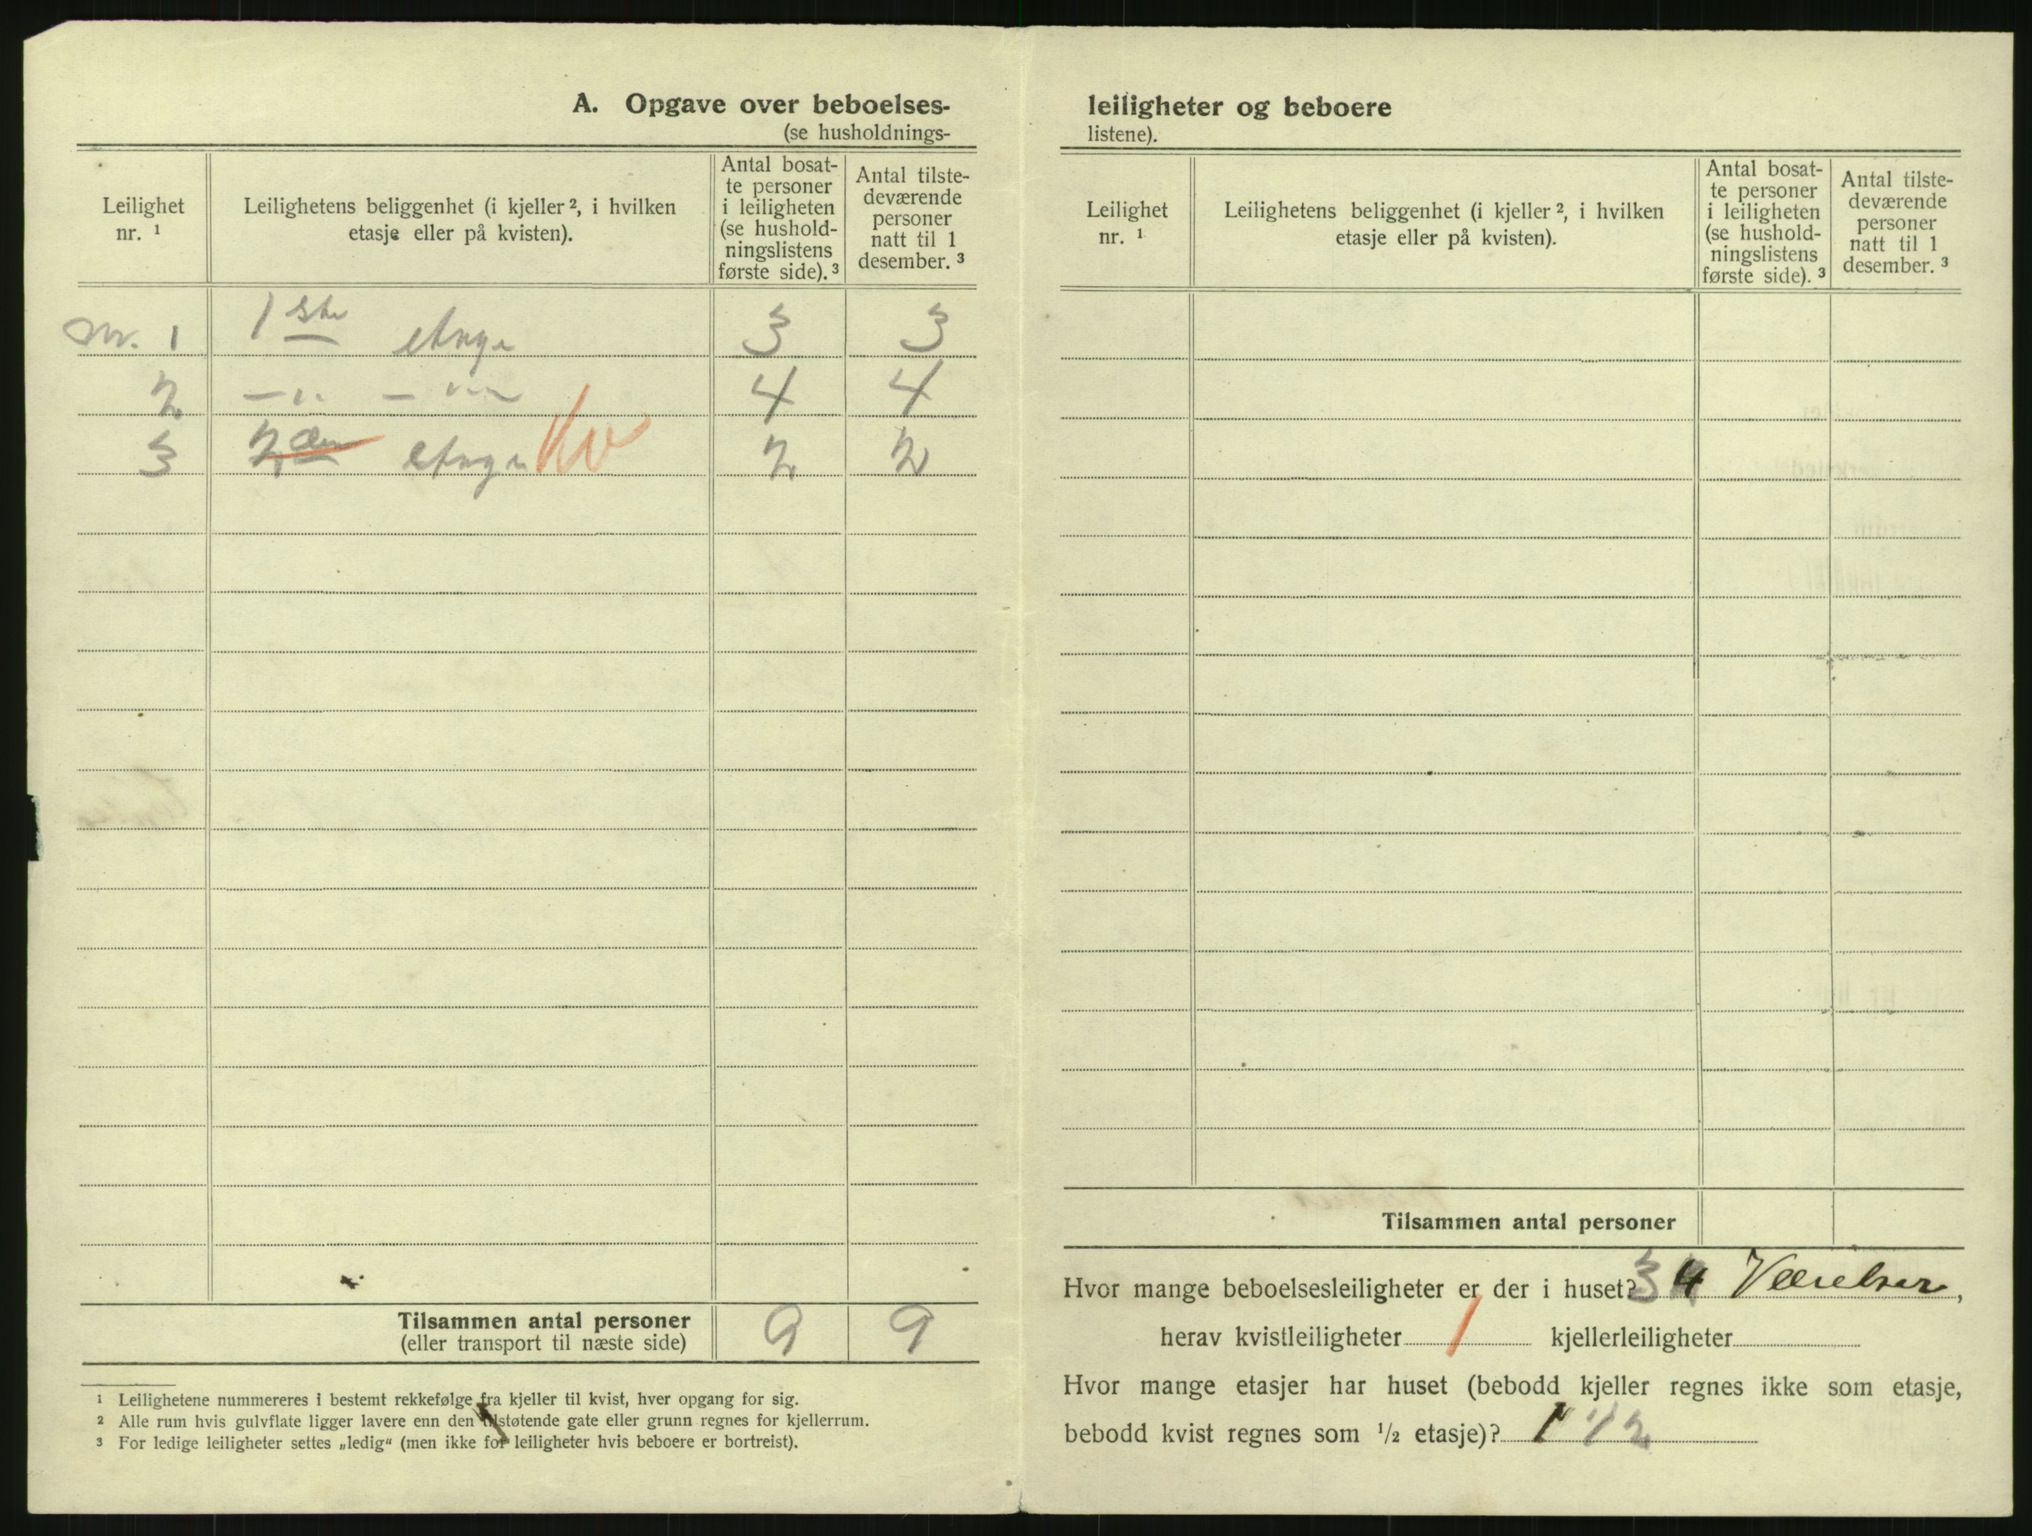 A. Opgave over beboelses-
(se husholdnings-
Leilighet
nr. ¹
Leilighetens beliggenhet (i kjeller ², i hvilken
etasje eller på kvisten).
Antal bosat-
te personer
i leiligheten
(se hushold-
ningslistens
første side). ³
Antal tilste-
deværende
personer
natt til 1
desember. ³
Nr. 1 1ste etage 3 3
2 — „ — „ — 4 4
3 2den etage Kv 2 2
Tilsammen antal personer
(eller transport til næste side)
9 9
¹ Leilighetene nummereres i bestemt rekkefølge fra kjeller til kvist, hver opgang for sig.
² Alle rum hvis gulvflate ligger lavere enn den tilstøtende gate eller grunn regnes for kjellerrum.
³ For ledige leiligheter settes „ledig“ (men ikke for leiligheter hvis beboere er bortreist).
leiligheter og beboere
listene).
Leilighet
nr. ¹
Leilighetens beliggenhet (i kjeller ², i hvilken
etasje eller på kvisten).
Antal bosat-
te personer
i leiligheten
(se hushold-
ningslistens
første side). ³
Antal tilste-
deværende
personer
natt til 1
desember. ³
Tilsammen antal personer
Hvor mange beboelsesleiligheter er der i huset? 3 4 Værelser,
herav kvistleiligheter 1 kjellerleiligheter
Hvor mange etasjer har huset (bebodd kjeller regnes ikke som etasje,
bebodd kvist regnes som ½ etasje)? 1 1/2